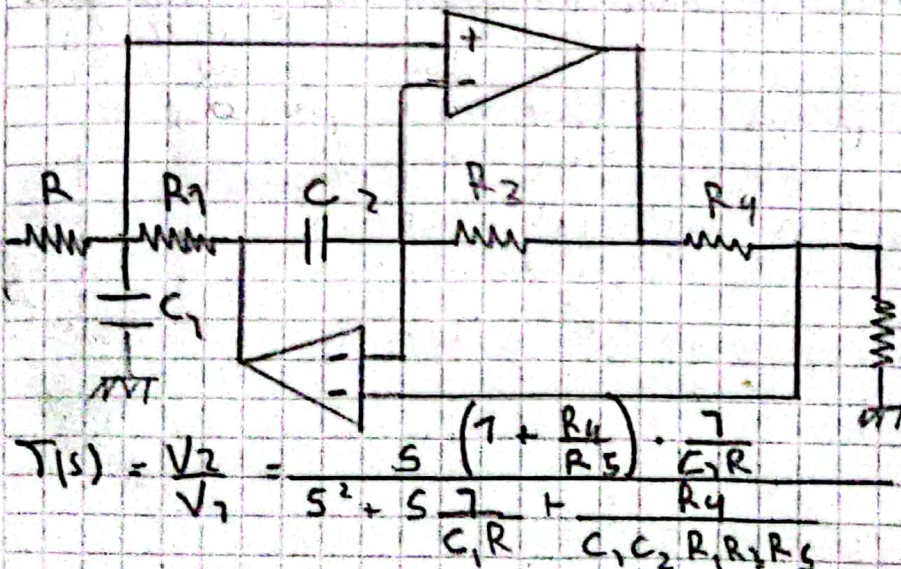 +
-
R R1 C2 R3 R4
C1
-
-
T(s) = V2/V1 = s (1 + R4/R5) · 1/(C1R) / (s² + s 1/(C1R) + R4/(C1C2R1R3R5))